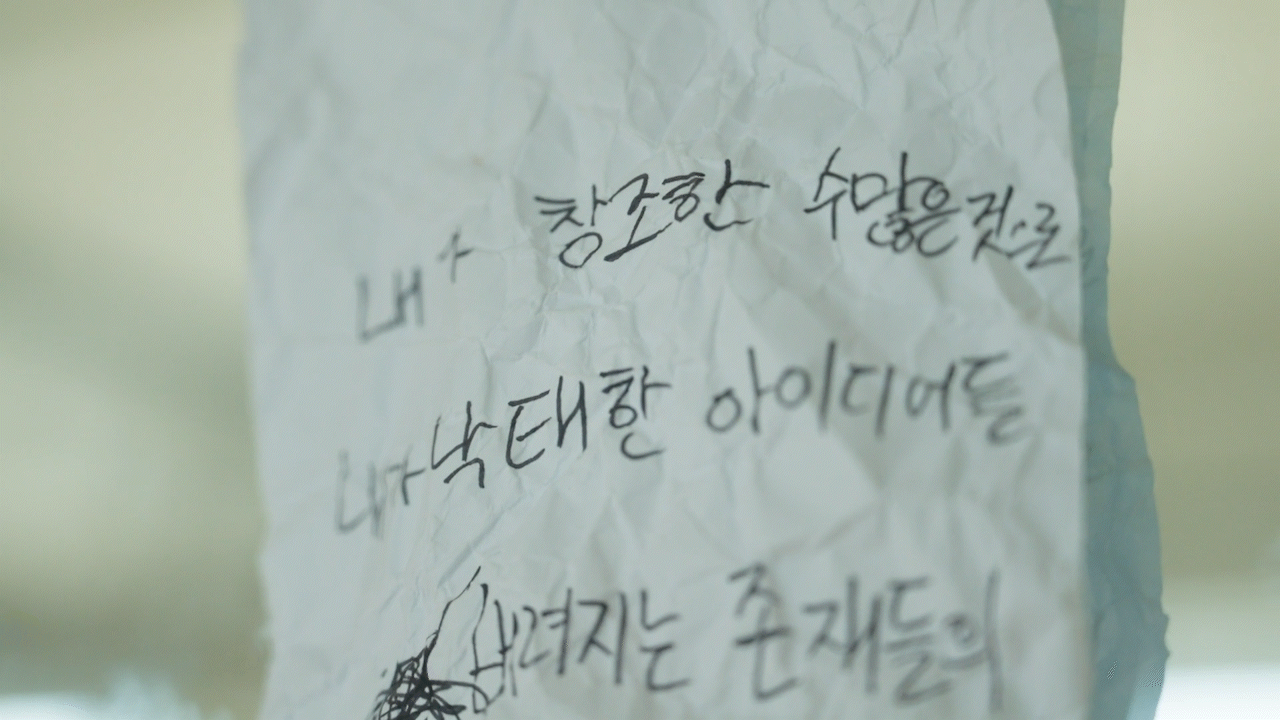 내가 창조한 수많은 것으로
내가 낙태한 아이디어들
버려지는 존재들의